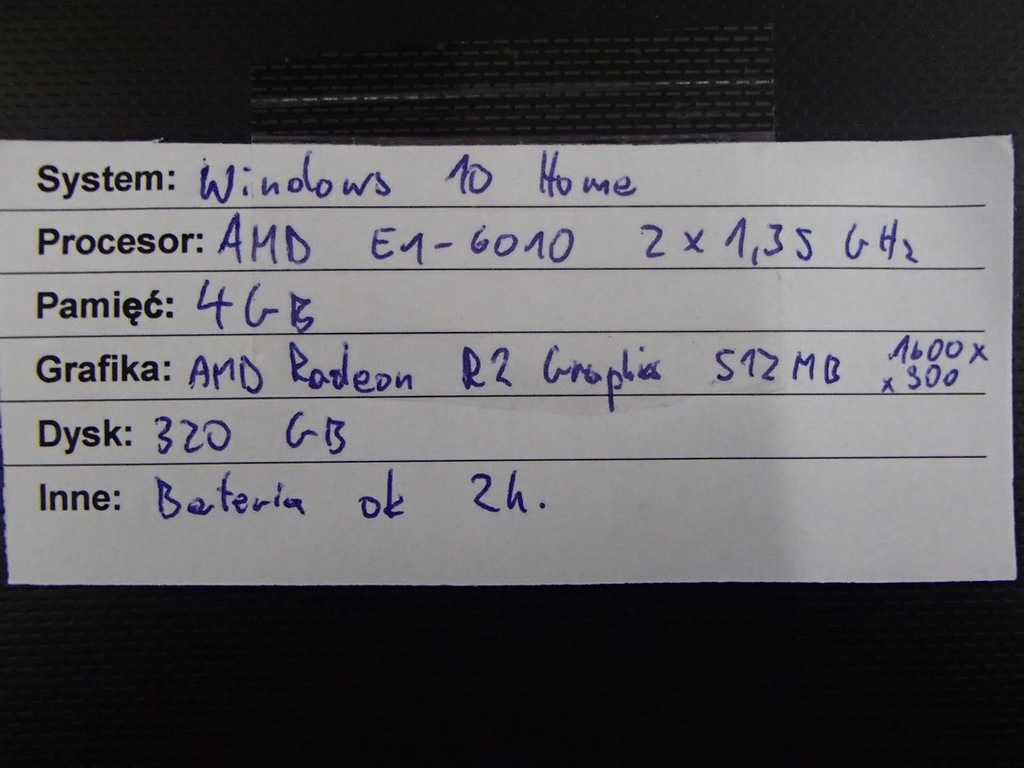 System: Windows 10 Home
Procesor: AMD E1-6010 2 x 1,35 GHz
Pamięć: 4 GB
Grafika: AMD Radeon R2 Graphics 512 MB 1600 x
x 900
Dysk: 320 GB
Inne: Bateria ok 2h.